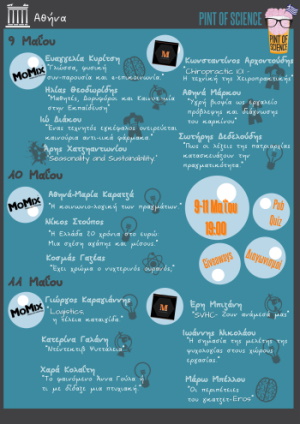 Αθήνα
PINT OF SCIENCE
PINT OF SCIENCE
9 Μαΐου
MoMix
Ευαγγελία Κυρίτση
"Γλώσσα, φυσική
συν-παρουσία και e-επικοινωνία"
Ηλίας Θεοδωρίδης
"Μαθητές, Δορυφόροι και Καινοτομία
στην Εκπαίδευση"
Ιώ Διάκου
"Ένας τεχνητός εγκέφαλος ονειρεύεται
καινούρια αντι-ικά φάρμακα"
Άρης Χατζηαντωνίου
"Seasonality and Sustainability"
M
Κωνσταντίνος Αρχοντούδης
"Chiropractic 101 -
Η τεχνική της Χειροπρακτικής"
Αθηνά Μάρκου
"Υγρή βιοψία ως εργαλείο
πρόβλεψης και διάγνωσης
του καρκίνου"
Σωτήρης Δεδελούδης
"Πως οι λέξεις της πατριαρχίας
κατασκευάζουν την
πραγματικότητα"
10 Μαΐου
MoMix
Αθηνά-Μαρία Καρατζά
"Η κοινωνιολογική των πραγμάτων"
Νίκος Στούπος
"Η Ελλάδα 20 χρόνια στο ευρώ:
Μια σχέση αγάπης και μίσους."
Κοσμάς Γαζέας
"Έχει χρώμα ο νυχτερινός ουρανός;"
9-11 Μαΐου
19:00
Pub
Quiz
Giveaways
Διαγωνισμοί
11 Μαΐου
MoMix
Γιώργος Καραγιάννης
"Logistics:
η τέλεια καταιγίδα"
Κατερίνα Γαλάνη
"Ντέντεκτιβ Ψυττάλεια"
Χαρά Κολαΐτη
"Το φαινόμενο Άννα Γούλα ή
τι με δίδαξε μια πτυχιακή"
M
Έρη Μπιζάνη
"SVHC- Ζουν ανάμεσά μας"
Ιωάννης Νικολάου
"Η σημασία της μελέτης της
ψυχολογίας στους χώρους
εργασίας"
Μάριω Μπέλλου
"Οι περιπέτειες
του γκατζετ-Eros"